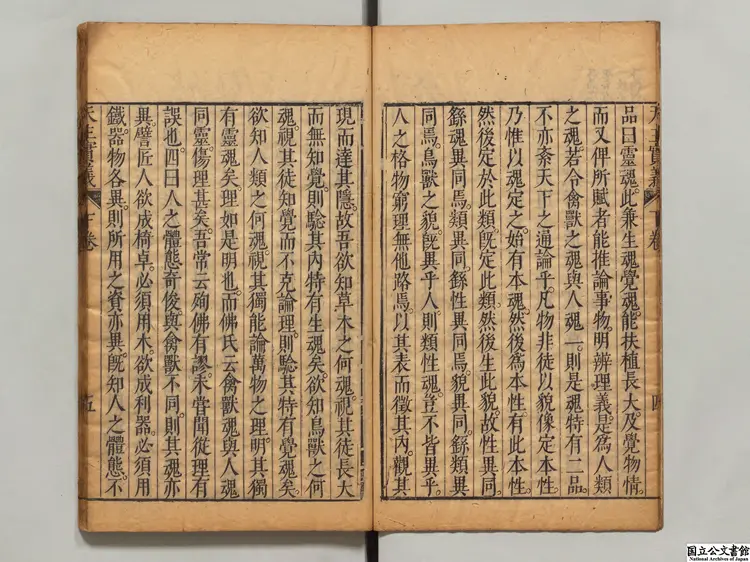 品曰靈魂。此兼生魂覺魂。能扶植長大及覺物情。
而又俾所賦者能推論事物。明辨理義。是為人類
之魂。若令禽獸之魂與人魂一。則是魂特有二品。
不亦紊天下之通論乎。凡物非徒以貌像定本性。
乃惟以魂定之。始有本魂。然後為本性。有此本性。
然後定於此類。旣定此類。然後生此貌。故性異同。
繇魂異同焉。類異同。繇性異同焉。貌異同。繇類異
同焉。鳥獸之貌。旣異乎人。則類性魂豈不皆異乎。
人之格物窮理無他路焉。以其表而徵其內。觀其
天主實義
下卷
四
現而達其隱。故吾欲知草木之何魂。視其徒長大
而無知覺。則騐其內特有生魂矣。欲知鳥獸之何
魂。視其徒知覺而不克論理。則騐其特有覺魂矣。
欲知人類之何魂。視其獨能論萬物之理。明其獨
有靈魂矣。理如是明也。而佛氏云禽獸魂與人魂
同靈。傷理甚矣。吾常云殉佛有謬。未嘗聞從理有
誤也。四曰人之體態奇俊與禽獸不同。則其魂亦
異。譬匠人欲成椅卓。必須用木。欲成利器。必須用
鐵。器物各異。則所用之資亦異。旣知人之體態。不
天主實義
下卷
五
国立公文書館
National Archives of Japan